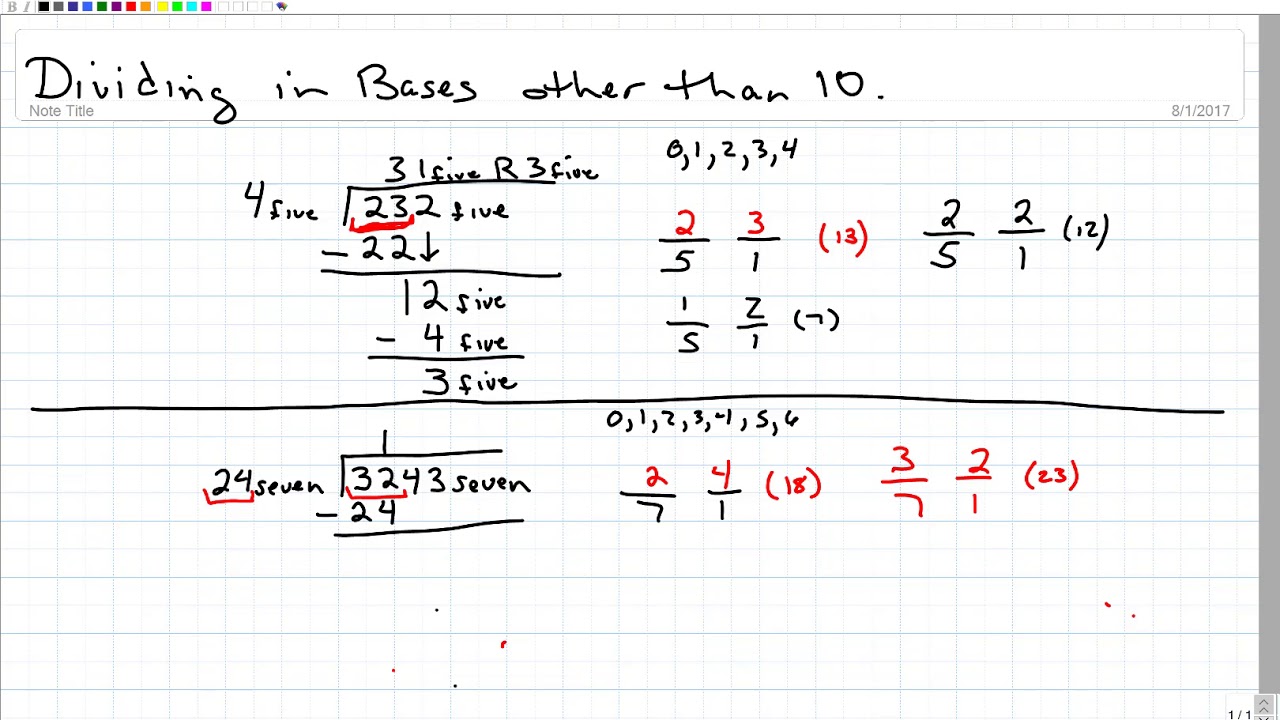 B I
Dividing in Bases other than 10.
Note Title
8/1/2017
31five R 3five
4five 232 five
- 22↓
12 five
- 4 five
3 five
0, 1, 2, 3, 4
2 3 (13)
5 1
2 2 (12)
5 1
1 2 (7)
5 1
1
24seven 3243 seven
- 24
0, 1, 2, 3, 4, 5, 6
2 4 (18)
7 1
3 2 (23)
7 1
1 / 1